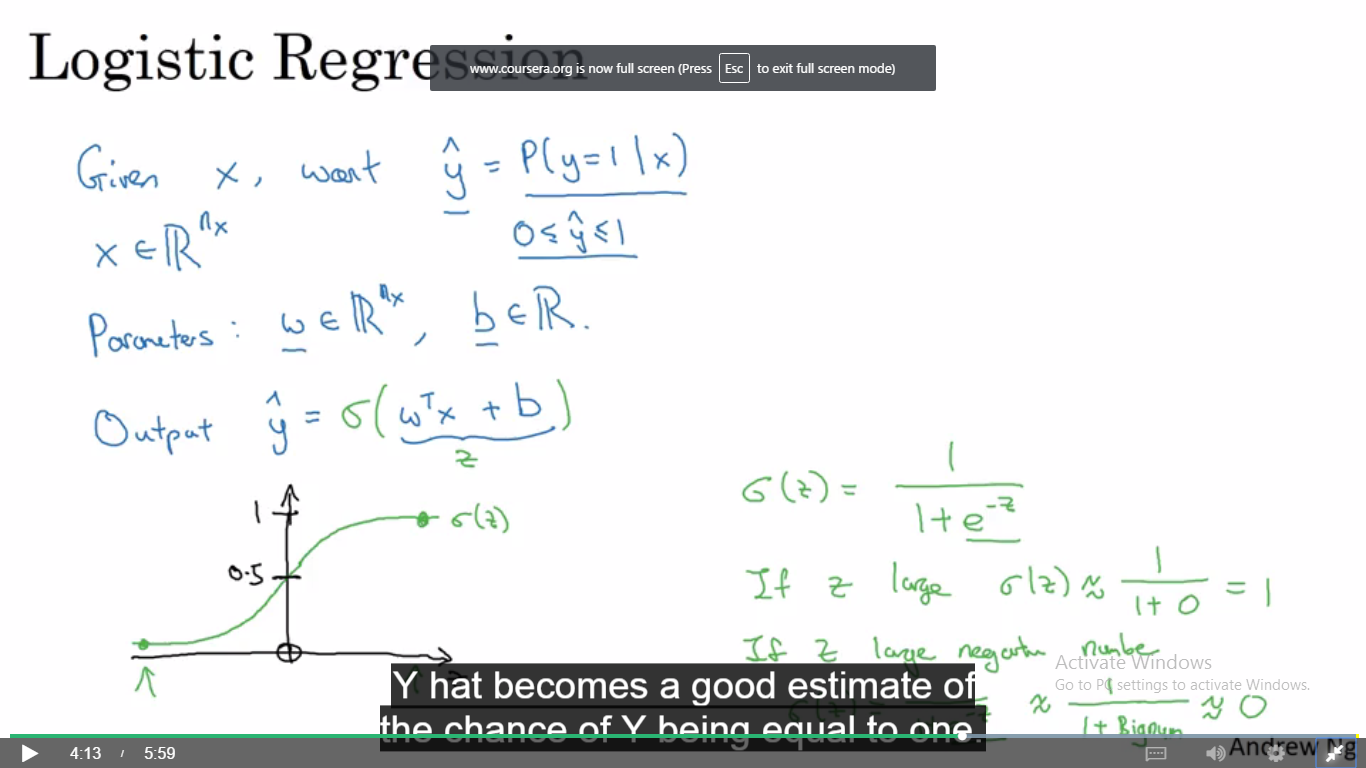 Logistic Regression
www.coursera.org is now full screen (Press Esc to exit full screen mode)
Given x, want ŷ = P(y=1|x)
0 ≤ ŷ ≤ 1
x ∈ ℝ^nx
Parameters: w ∈ ℝ^nx, b ∈ ℝ.
Output ŷ = σ(wᵀx + b)
z
1
σ(z)
0.5
σ(z) = 1 / (1 + e^-z)
If z large σ(z) ≈ 1 / (1 + 0) = 1
If z large negative number
≈ 1 / (1 + Bignum) ≈ 0
Activate Windows
Go to PC settings to activate Windows.
Y hat becomes a good estimate of
the chance of Y being equal to one.
4:13 / 5:59
Andrew Ng